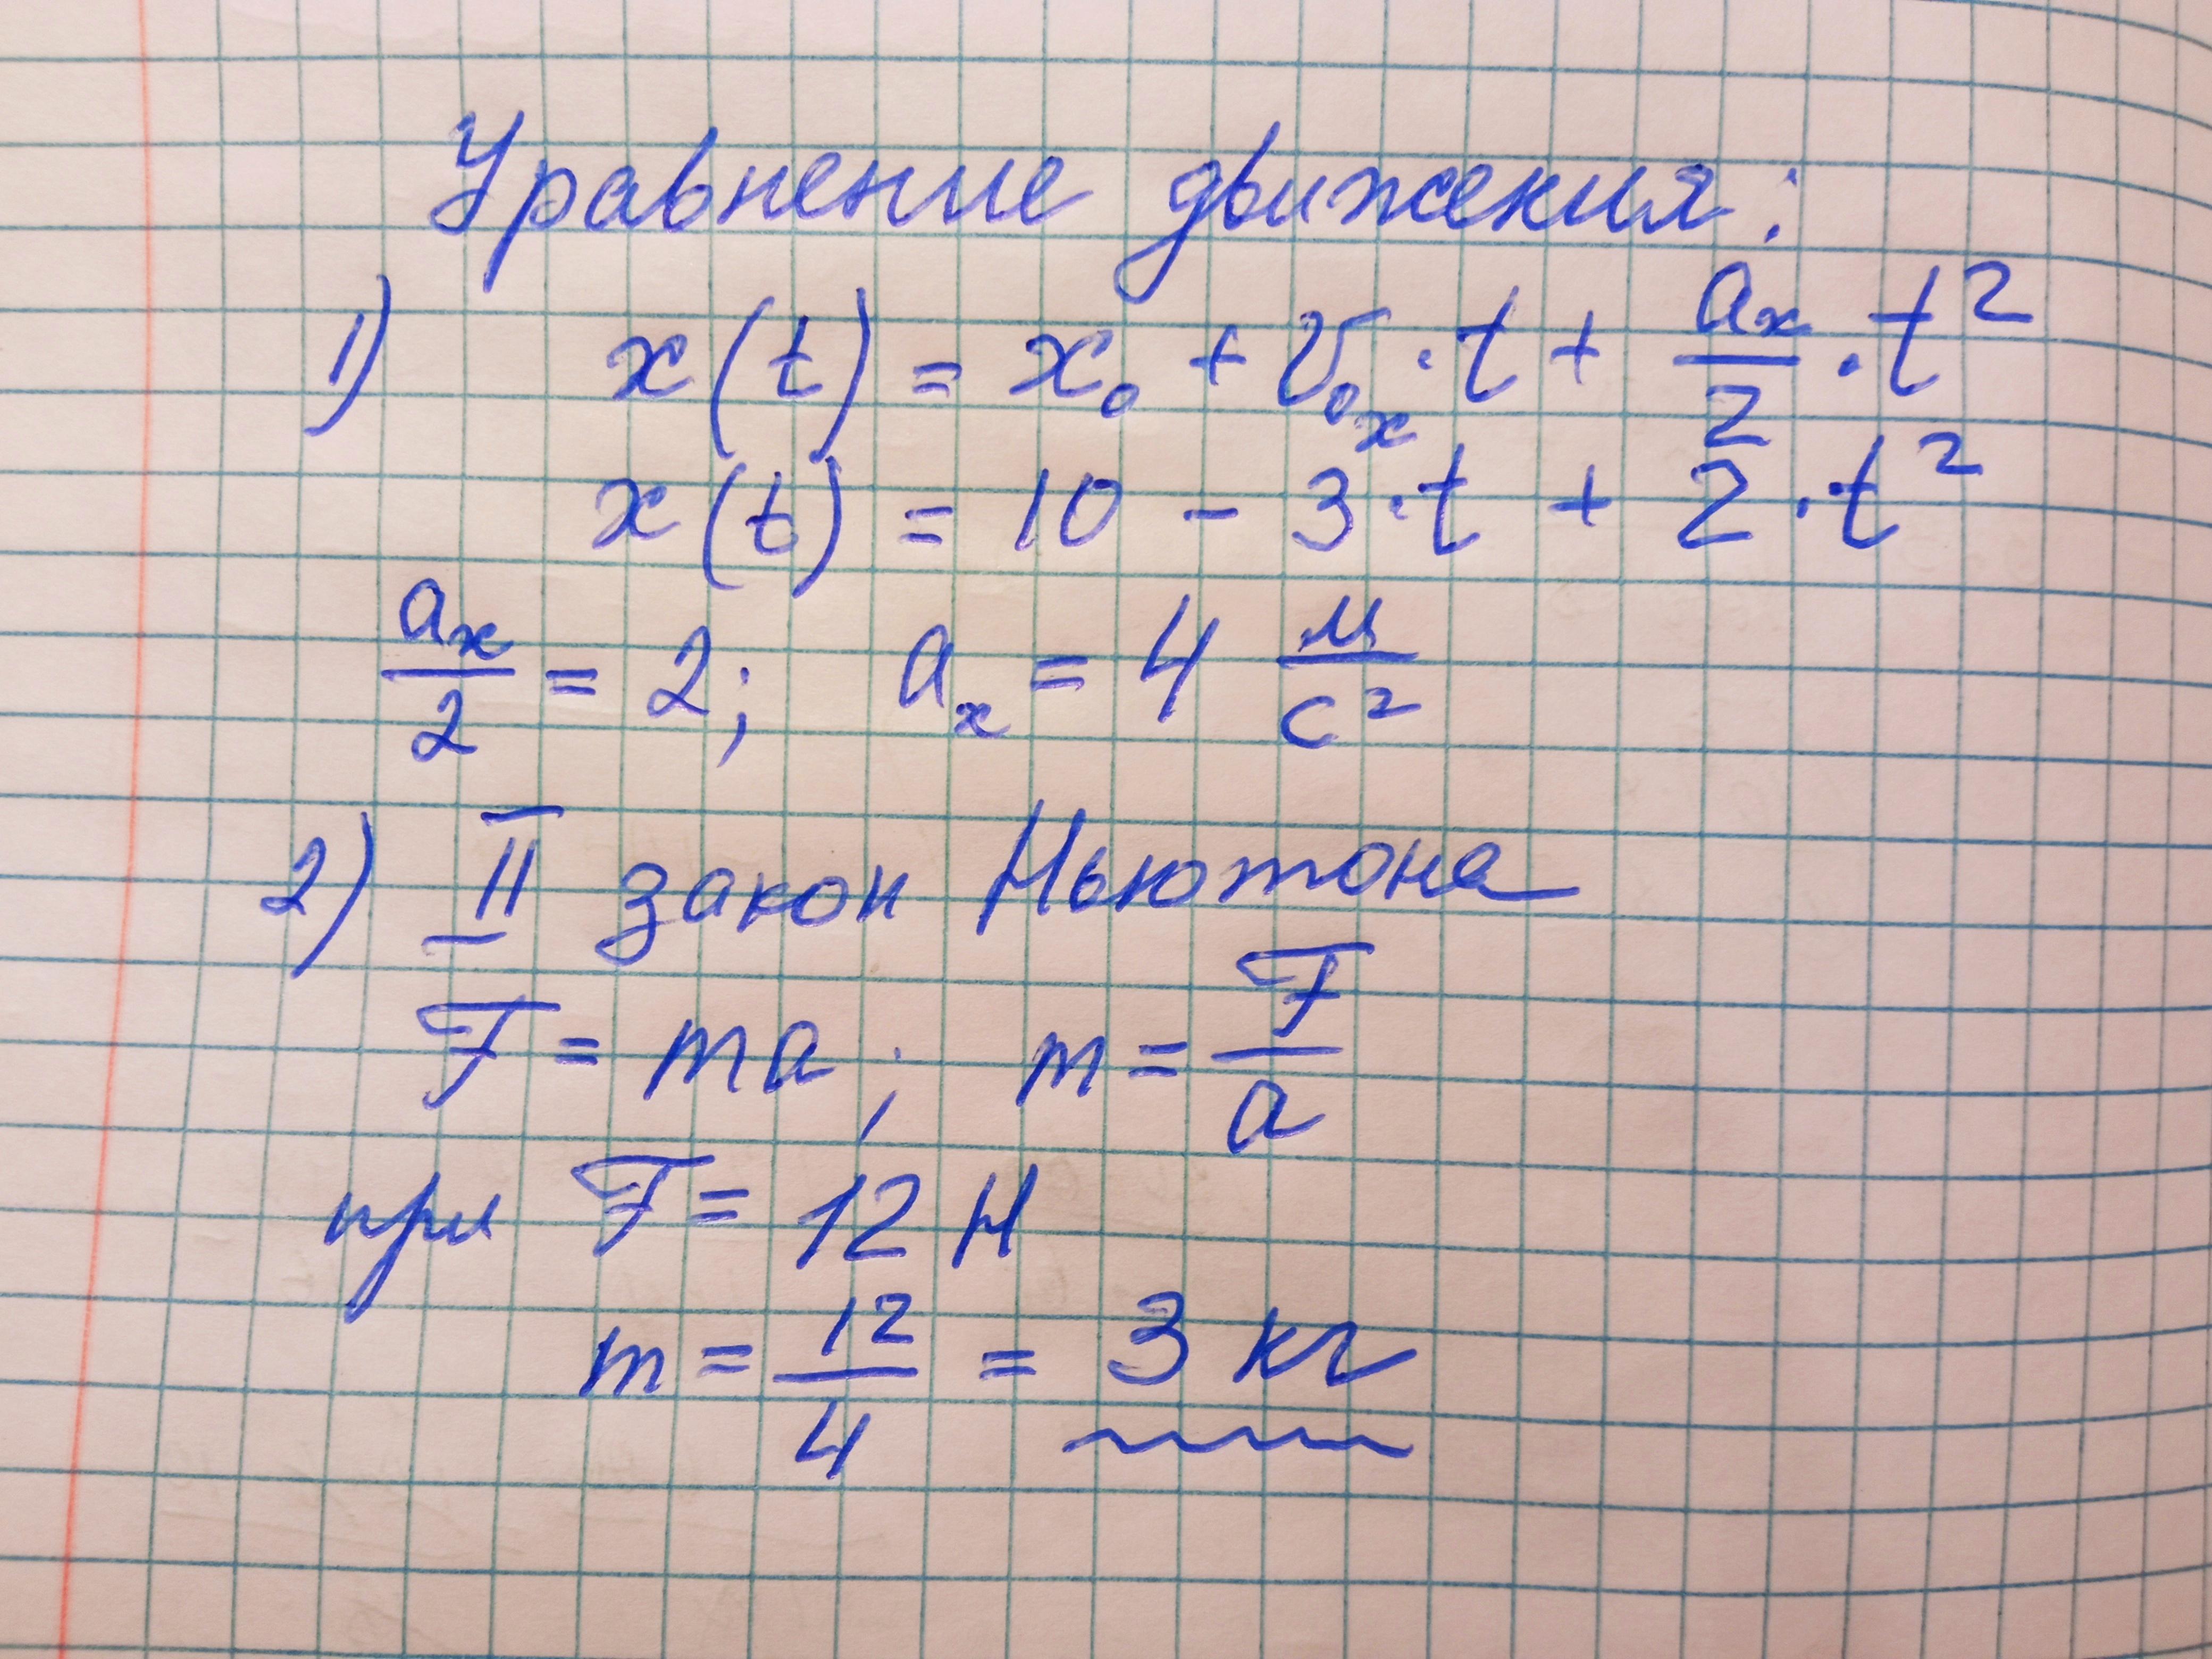 Уравнение движения:
1) x(t) = x₀ + V₀ₓ · t + aₓ/2 · t²
x(t) = 10 - 3 · t + 2 · t²
aₓ/2 = 2; aₓ = 4 м/с²
2) II закон Ньютона
F = ma; m = F/a
при F = 12 Н
m = 12/4 = 3 кг